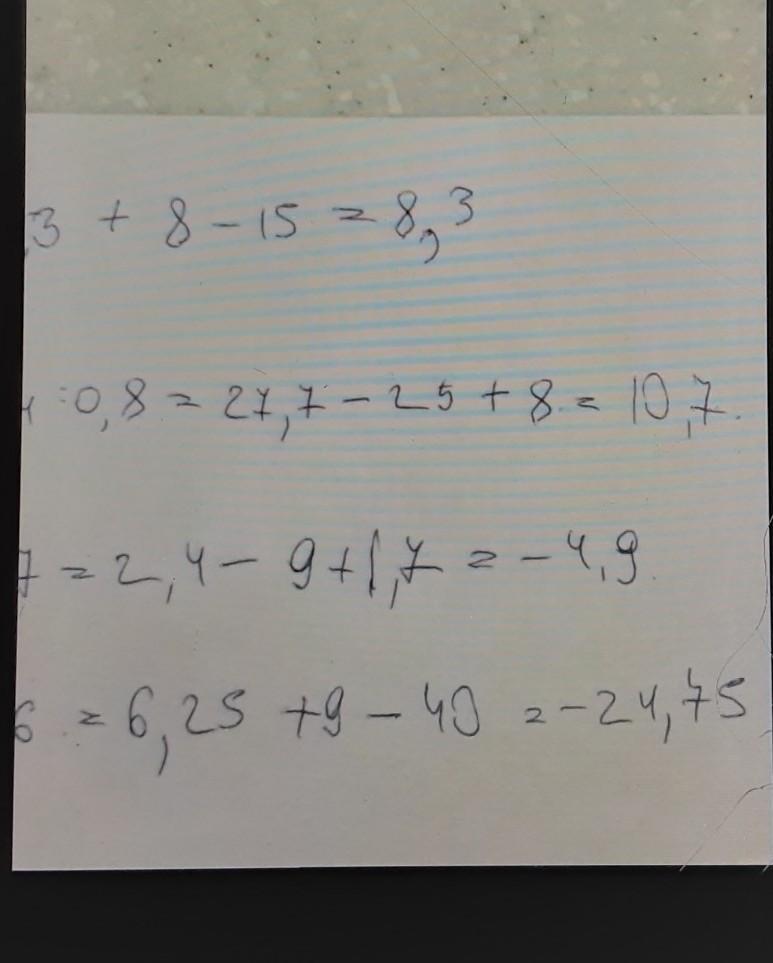 ,3 + 8 - 15 = 8,3
:0,8 = 27,7 - 25 + 8 = 10,7.
7 = 2,4 - 9 + 1,7 = -4,9.
6 = 6,25 + 9 - 40 = -24,75